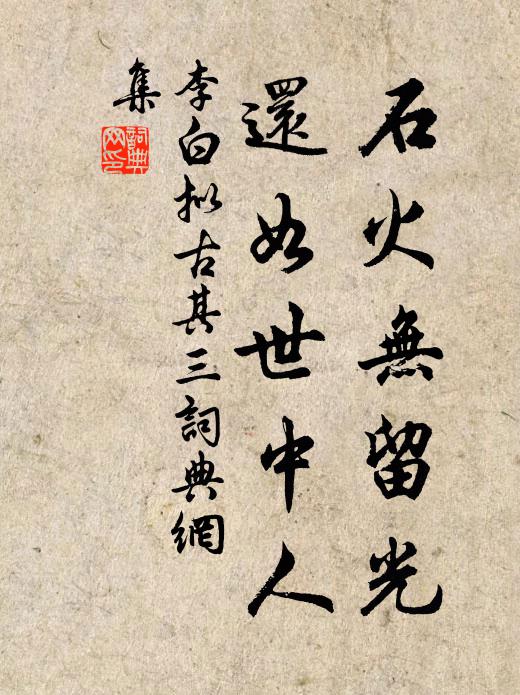 石火無留光
還如世中人
李白拟古其三詞典網
集
詞典网印